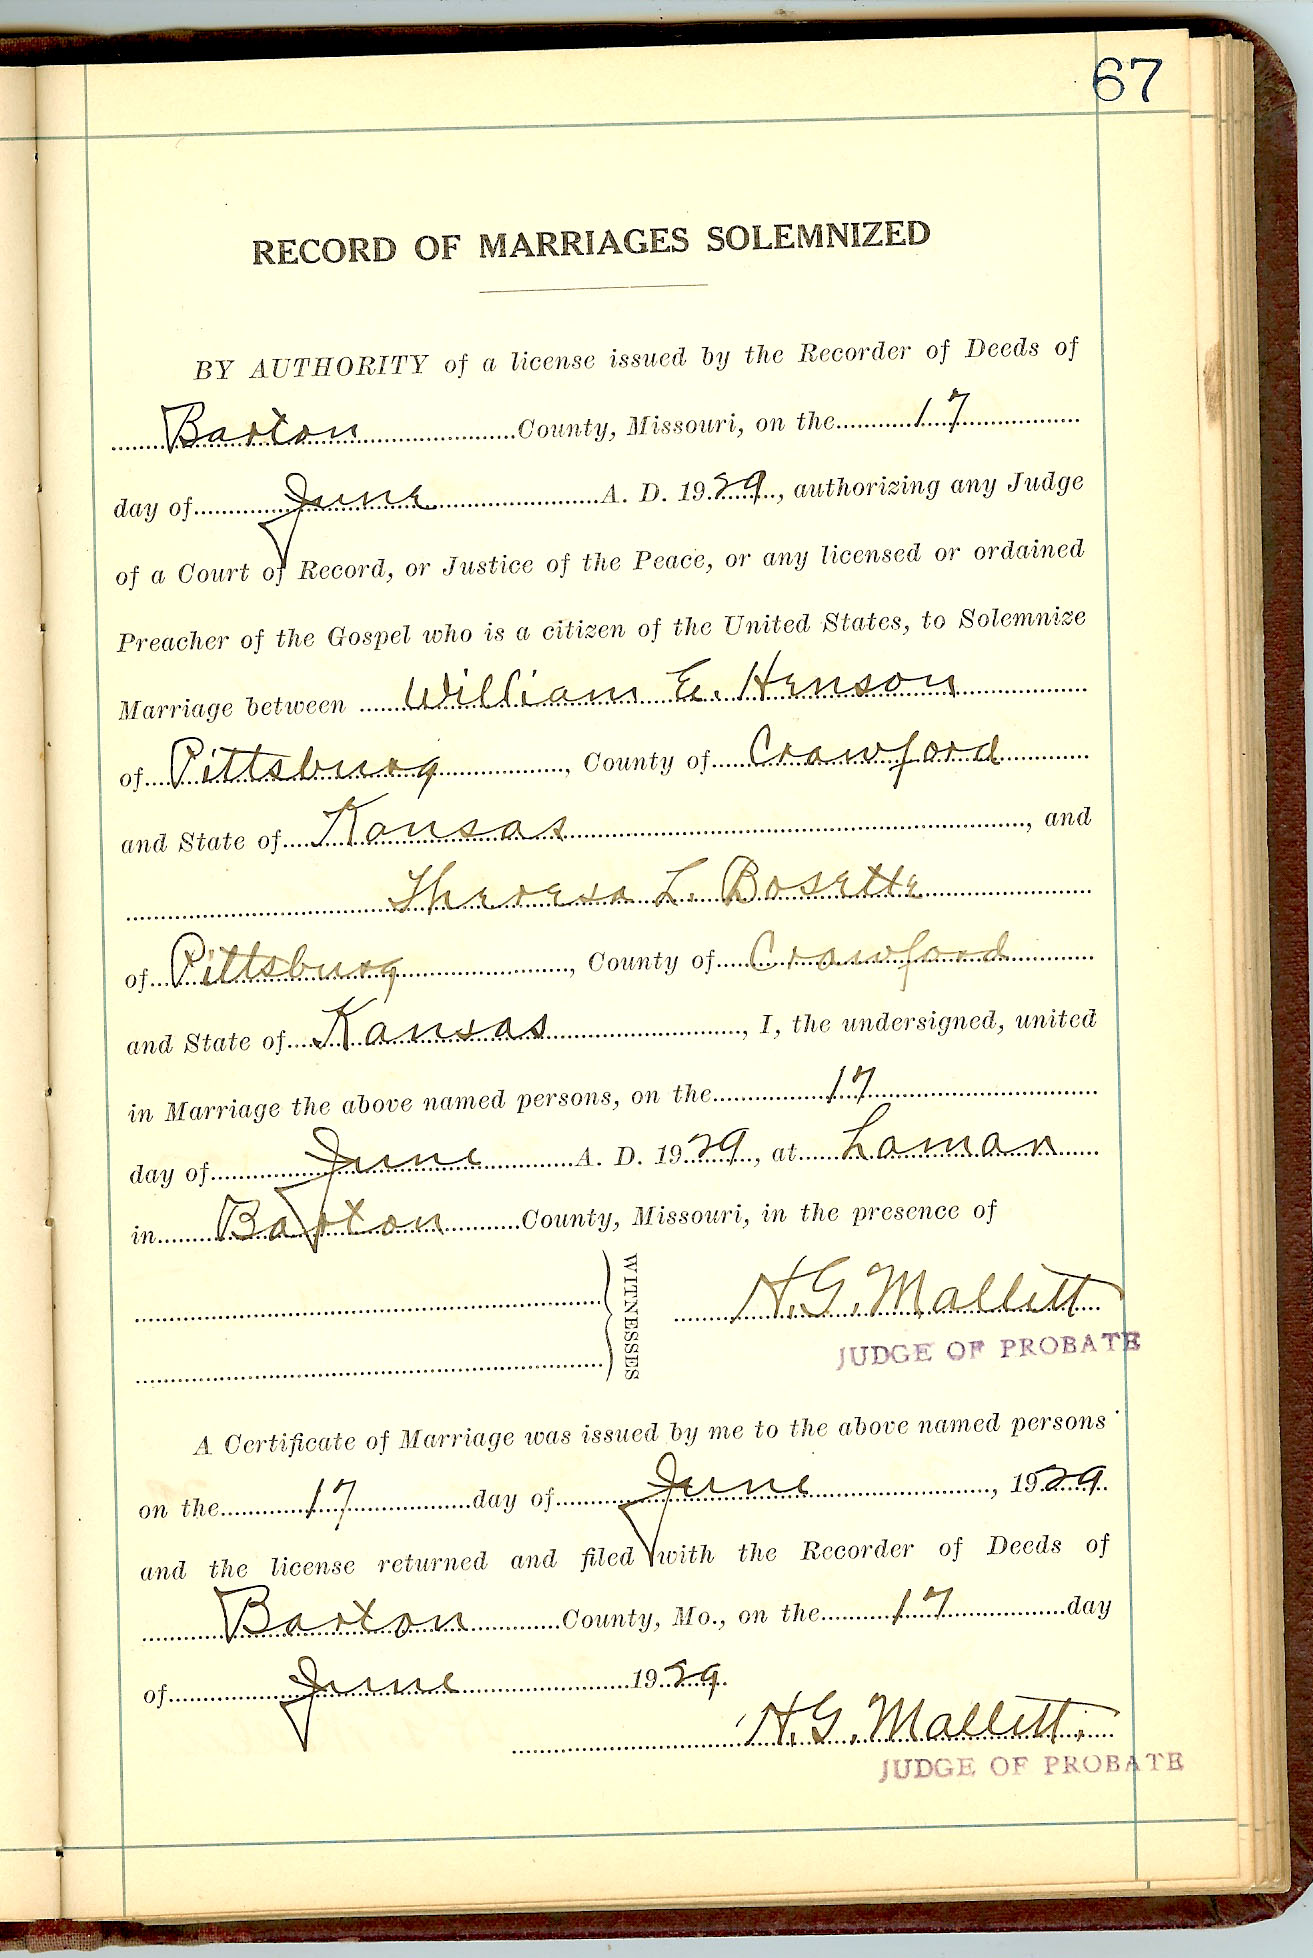 67
RECORD OF MARRIAGES SOLEMNIZED
BY AUTHORITY of a license issued by the Recorder of Deeds of
Barton County, Missouri, on the 17
day of June A. D. 1929, authorizing any Judge
of a Court of Record, or Justice of the Peace, or any licensed or ordained
Preacher of the Gospel who is a citizen of the United States, to Solemnize
Marriage between William E. Henson
of Pittsburg, County of Crawford
and State of Kansas, and
Theresa L. Bosette
of Pittsburg, County of Crawford
and State of Kansas, I, the undersigned, united
in Marriage the above named persons, on the 17
day of June A. D. 1929, at Lamar
in Barton County, Missouri, in the presence of
WITNESSES
H. G. Mallett
JUDGE OF PROBATE
A Certificate of Marriage was issued by me to the above named persons
on the 17 day of June, 1929
and the license returned and filed with the Recorder of Deeds of
Barton County, Mo., on the 17 day
of June 1929.
H. G. Mallett.
JUDGE OF PROBATE